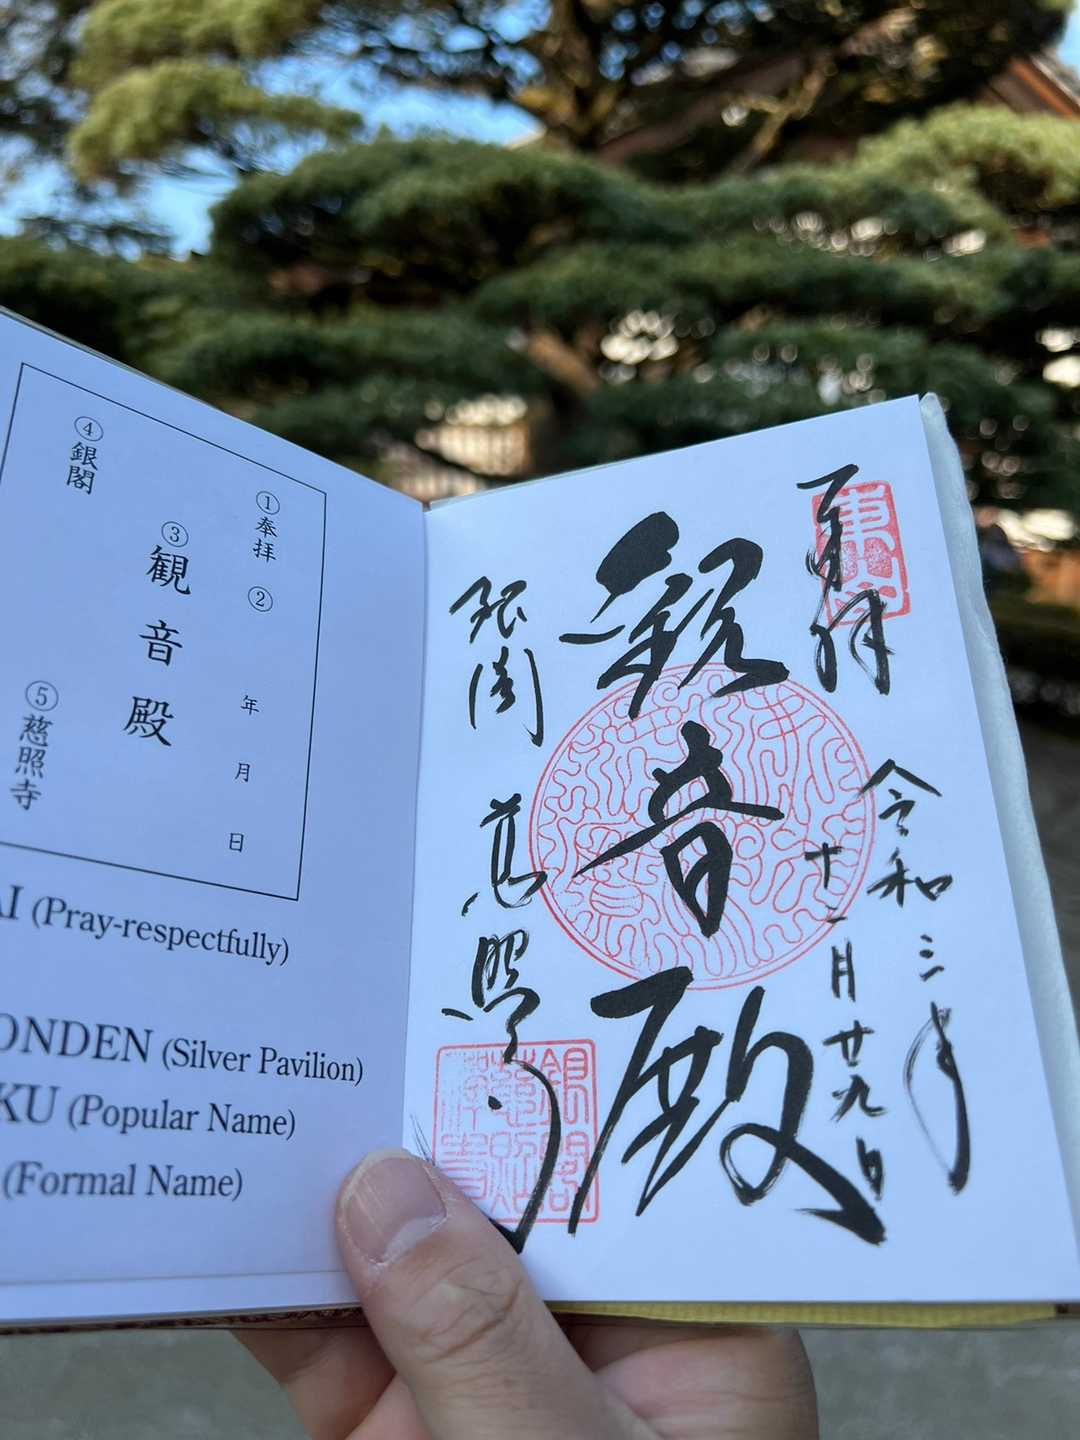 ①奉拝 ② 年 月 日
③観音殿
④銀閣
⑤慈照寺
AI (Pray-respectfully)
ONDEN (Silver Pavilion)
KU (Popular Name)
(Formal Name)
奉拝
令和三年
十二月廿九日
観音殿
銀閣
慈照寺
銀閣
慈照
禅寺